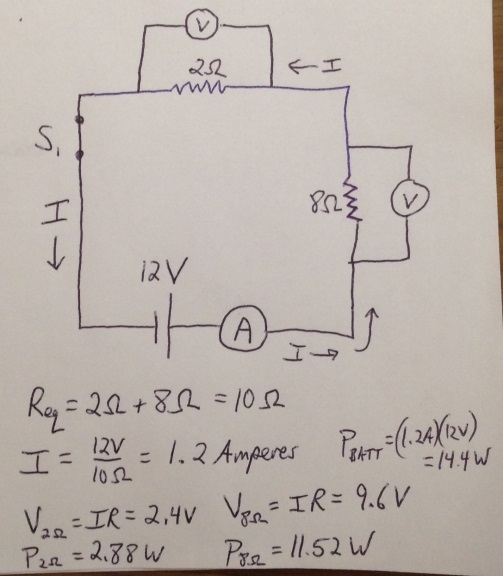 V
2Ω
← I
S₁
I
↓
8Ω
V
12V
A
I →
R_eq = 2Ω + 8Ω = 10Ω
I = 12V/10Ω = 1.2 Amperes
P_BATT = (1.2A)(12V)
= 14.4W
V_2Ω = IR = 2.4V
V_8Ω = IR = 9.6V
P_2Ω = 2.88W
P_8Ω = 11.52W